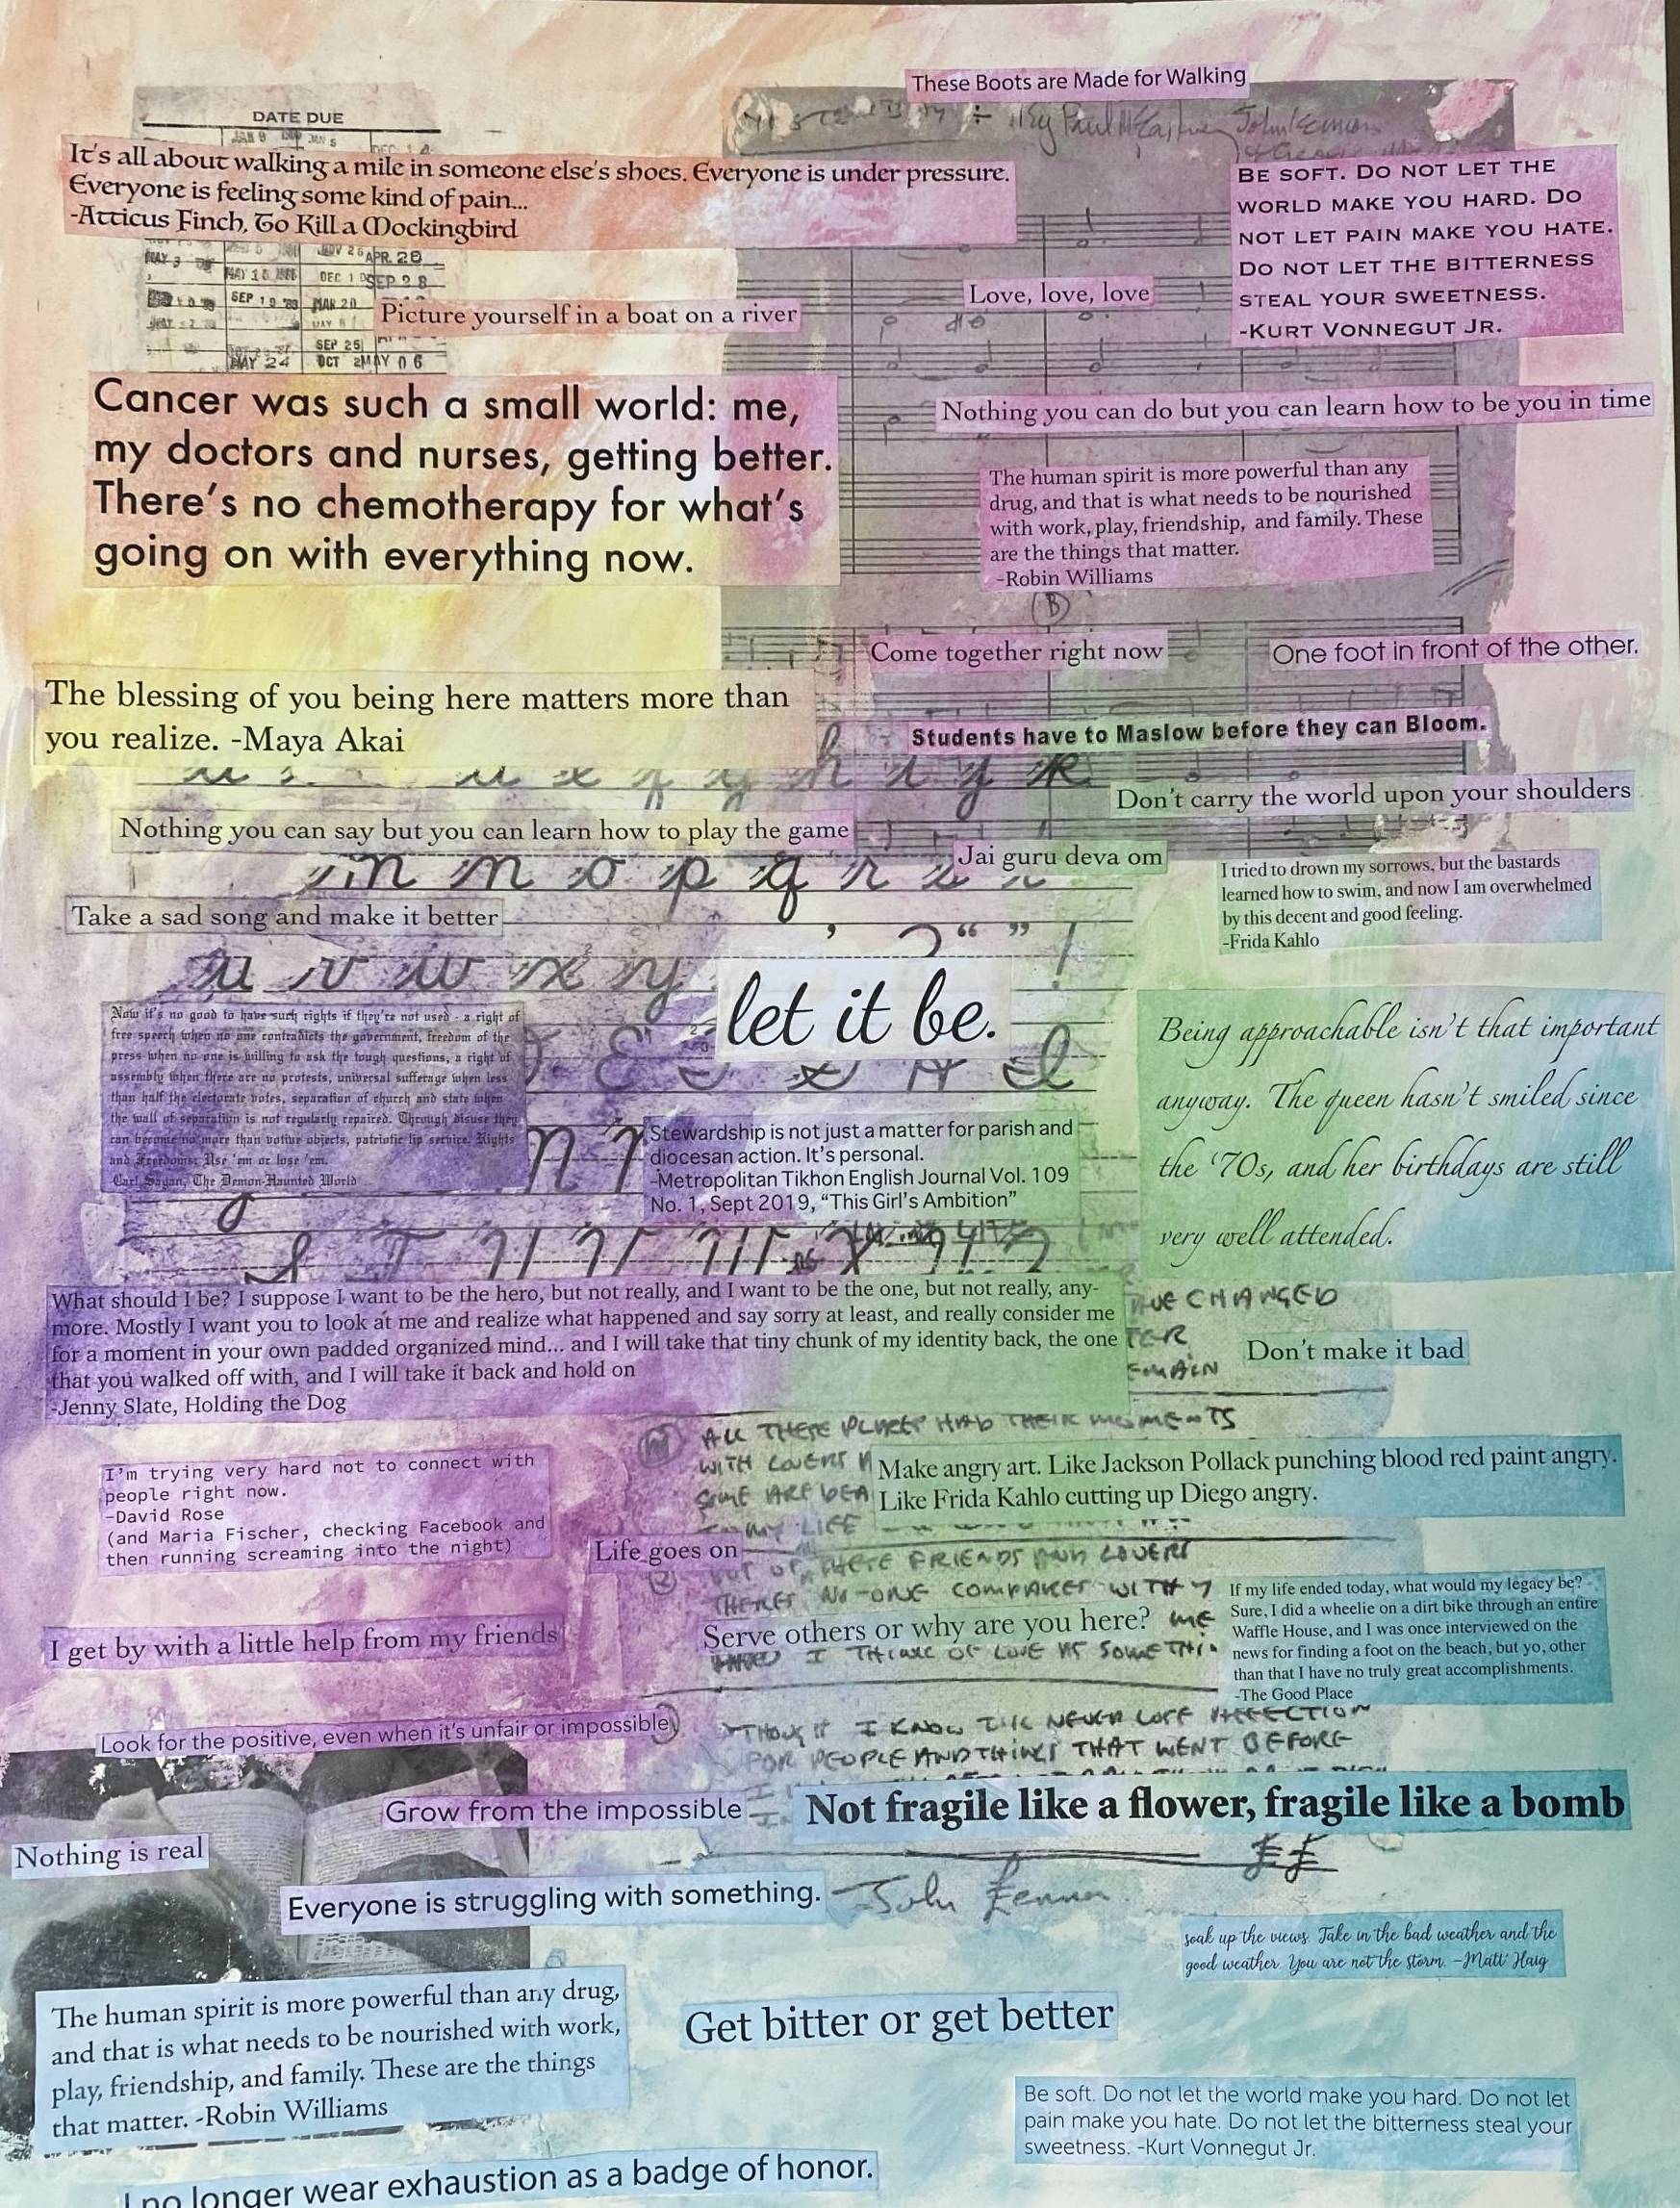 These Boots are Made for Walking
DATE DUE
By Paul McCartney John Lennon
It's all about walking a mile in someone else's shoes. Everyone is under pressure.
Everyone is feeling some kind of pain...
-Atticus Finch, To Kill a Mockingbird
BE SOFT. DO NOT LET THE
WORLD MAKE YOU HARD. DO
NOT LET PAIN MAKE YOU HATE.
DO NOT LET THE BITTERNESS
STEAL YOUR SWEETNESS.
-KURT VONNEGUT JR.
APR. 20
DEC 1 SEP 28
SEP 19 MAR 20
SEP 25
MAY 24 OCT 2 MAY 06
Love, love, love
Picture yourself in a boat on a river
Cancer was such a small world: me,
my doctors and nurses, getting better.
There's no chemotherapy for what's
going on with everything now.
Nothing you can do but you can learn how to be you in time
The human spirit is more powerful than any
drug, and that is what needs to be nourished
with work, play, friendship, and family. These
are the things that matter.
-Robin Williams
B
Come together right now
One foot in front of the other.
The blessing of you being here matters more than
you realize. -Maya Akai
Students have to Maslow before they can Bloom.
Don't carry the world upon your shoulders
Nothing you can say but you can learn how to play the game
Jai guru deva om
m o p q r
I tried to drown my sorrows, but the bastards
learned how to swim, and now I am overwhelmed
by this decent and good feeling.
-Frida Kahlo
Take a sad song and make it better
u v w x y
let it be.
Now it's no good to have such rights if they're not used - a right of
free speech when no one contradicts the government, freedom of the
press when no one is willing to ask the tough questions, a right of
assembly when there are no protests, universal sufferage when less
than half the electorate votes, separation of church and state when
the wall of separation is not regularly repaired. Through disuse they
can become no more than votive objects, patriotic lip service. Rights
and Freedoms: Use 'em or lose 'em.
Carl Sagan, The Demon-Haunted World
Being approachable isn't that important
anyway. The queen hasn't smiled since
the '70s, and her birthdays are still
very well attended.
Stewardship is not just a matter for parish and
diocesan action. It's personal.
-Metropolitan Tikhon English Journal Vol. 109
No. 1, Sept 2019, "This Girl's Ambition"
What should I be? I suppose I want to be the hero, but not really, and I want to be the one, but not really, any-
more. Mostly I want you to look at me and realize what happened and say sorry at least, and really consider me
for a moment in your own padded organized mind... and I will take that tiny chunk of my identity back, the one
that you walked off with, and I will take it back and hold on
-Jenny Slate, Holding the Dog
CHANGED
Don't make it bad
ALL THESE PLACES HAD THEIR MOMENTS
WITH LOVERS
SOME ARE DEA
MY LIFE
Make angry art. Like Jackson Pollack punching blood red paint angry.
Like Frida Kahlo cutting up Diego angry.
I'm trying very hard not to connect with
people right now.
-David Rose
(and Maria Fischer, checking Facebook and
then running screaming into the night)
Life goes on
OF THESE FRIENDS AND LOVERS
THERES NO-ONE COMPARES WITH Y
Serve others or why are you here?
I THINK OF LOVE AS SOMETHI
If my life ended today, what would my legacy be?
Sure, I did a wheelie on a dirt bike through an entire
Waffle House, and I was once interviewed on the
news for finding a foot on the beach, but yo, other
than that I have no truly great accomplishments.
-The Good Place
I get by with a little help from my friends
Look for the positive, even when it's unfair or impossible
THOUGH I KNOW ILL NEVER LOSE AFFECTION
FOR PEOPLE AND THINGS THAT WENT BEFORE
Grow from the impossible
Not fragile like a flower, fragile like a bomb
Nothing is real
Everyone is struggling with something.
John Lennon
soak up the views. Take in the bad weather and the
good weather. You are not the storm. -Matt Haig
The human spirit is more powerful than any drug,
and that is what needs to be nourished with work,
play, friendship, and family. These are the things
that matter. -Robin Williams
Get bitter or get better
Be soft. Do not let the world make you hard. Do not let
pain make you hate. Do not let the bitterness steal your
sweetness. -Kurt Vonnegut Jr.
I no longer wear exhaustion as a badge of honor.